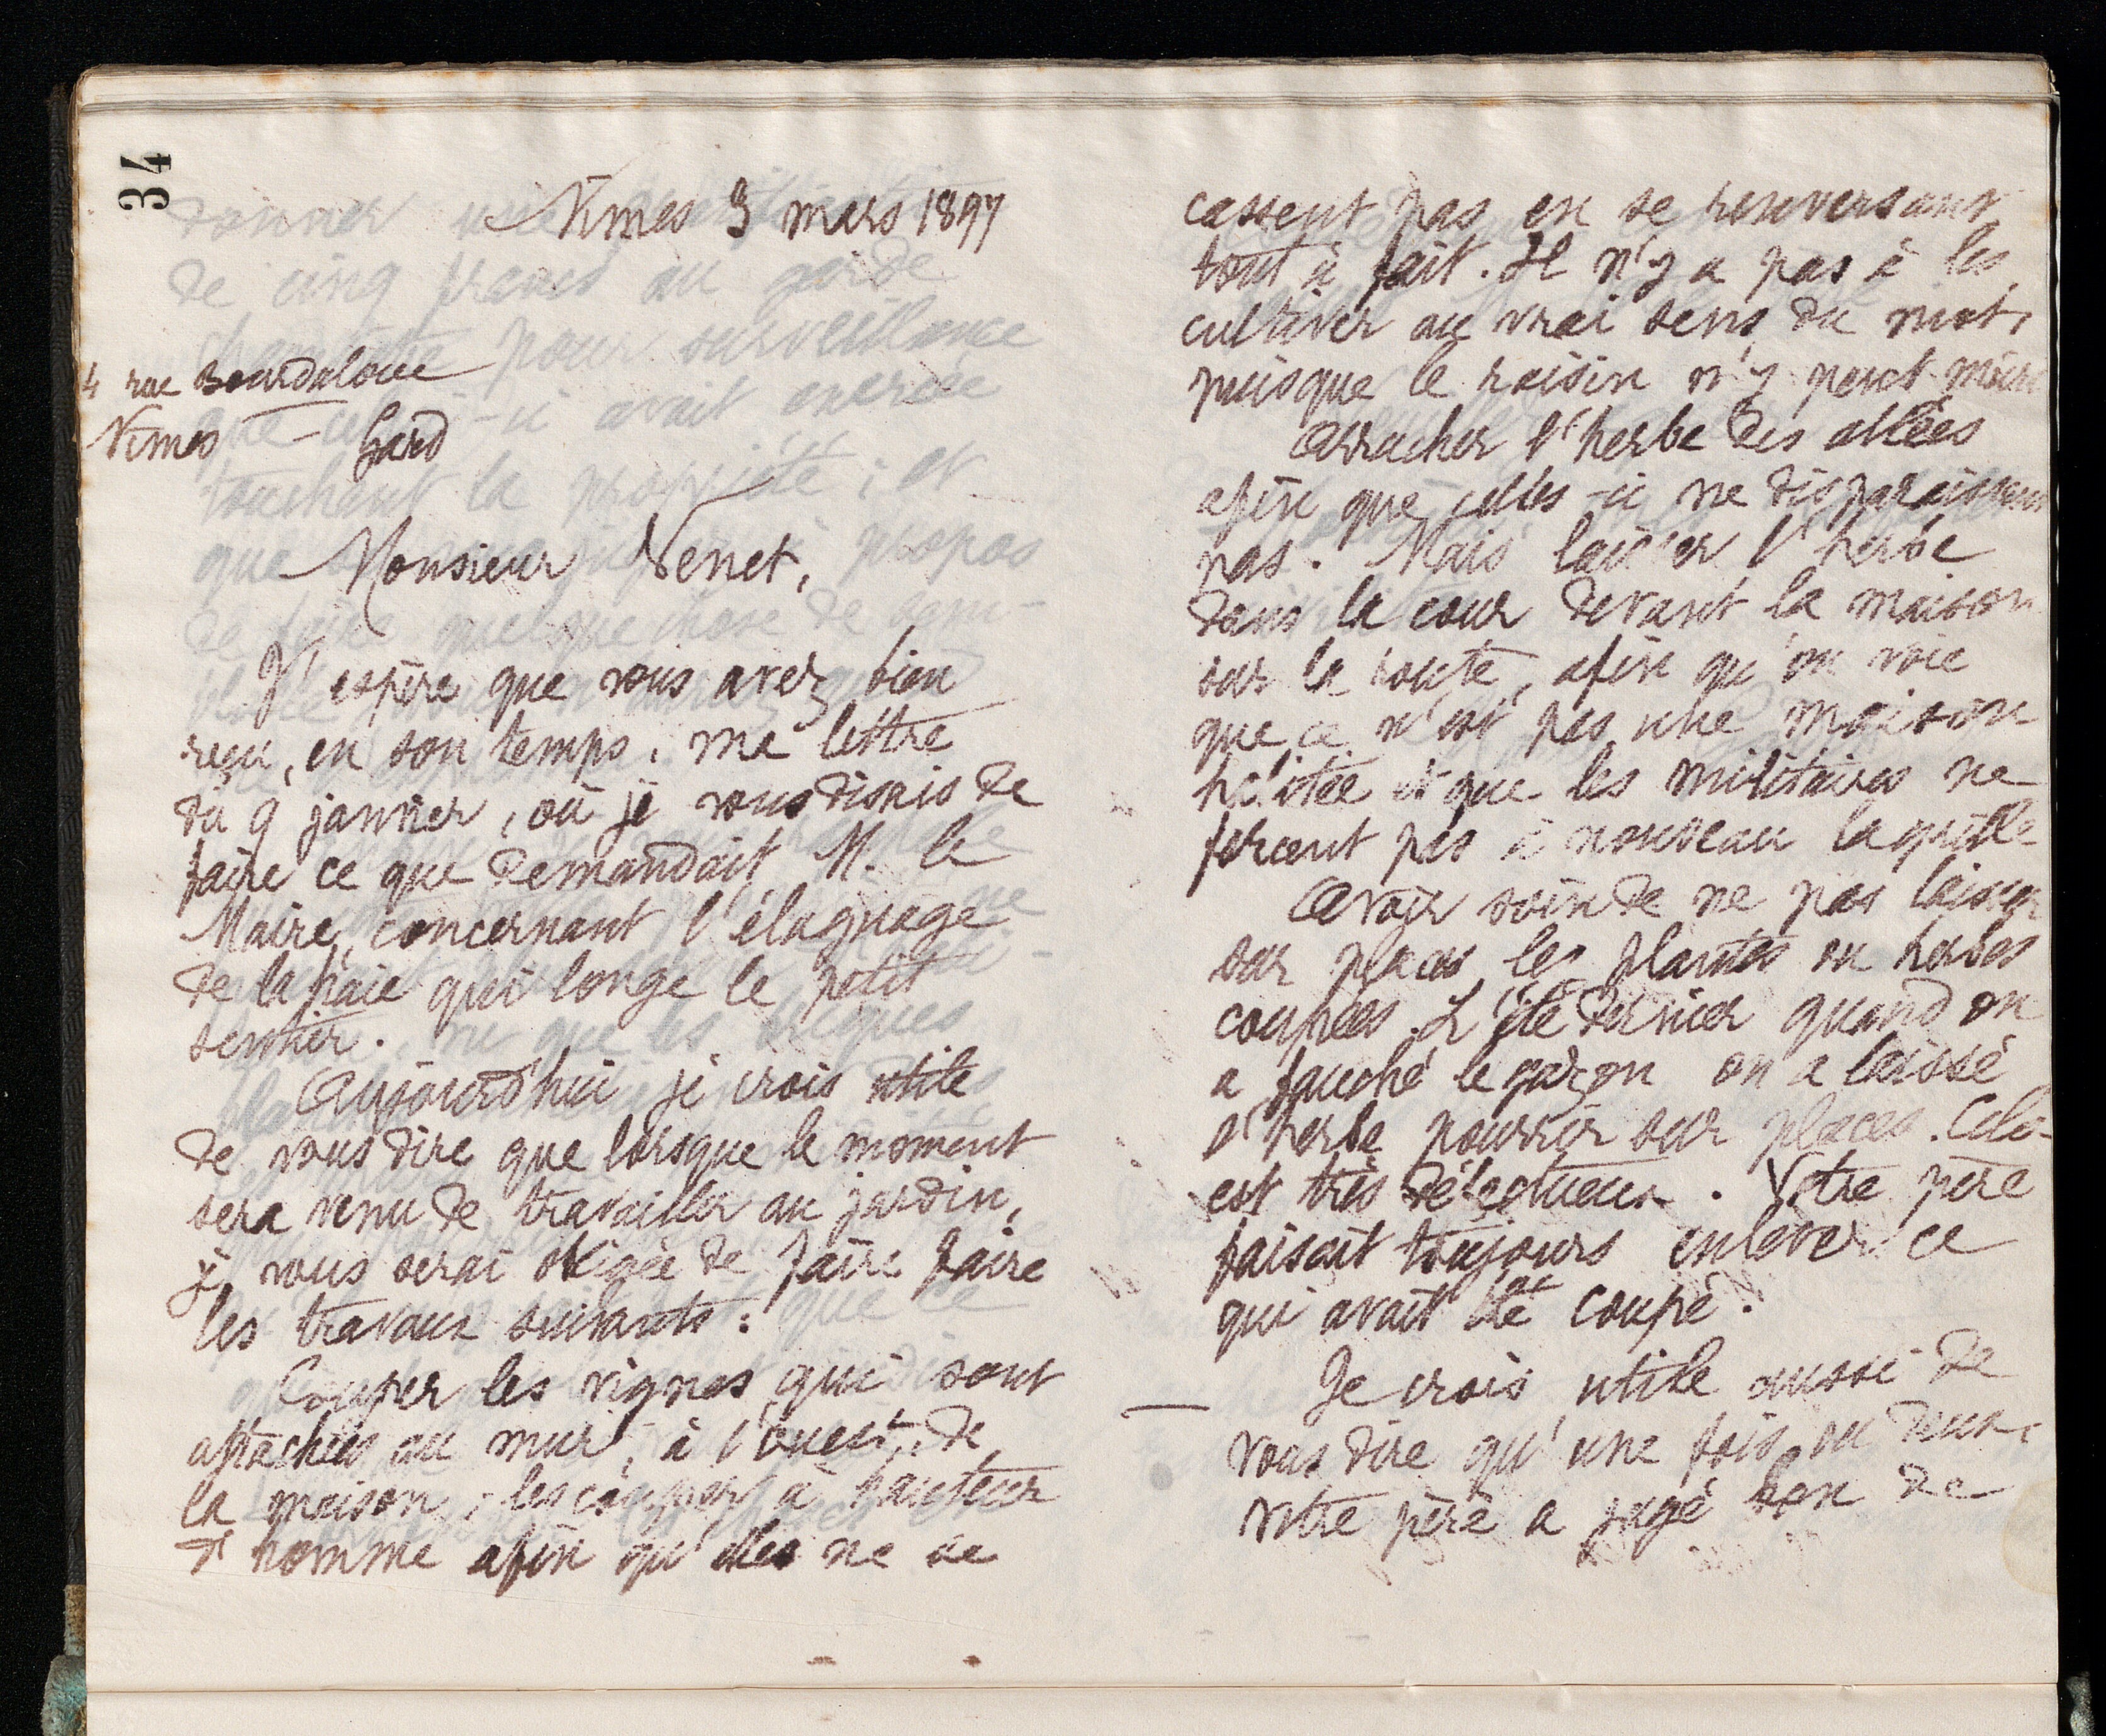 34
Nîmes 3 mars 1897
4 rue Bourdaloue
Nîmes — Gard
Monsieur Venet,
J'espère que vous avez bien
reçu, en son temps, ma lettre
du 9 janvier, où je vous disais de
faire ce que demandait M. le
Maire, concernant l'élaguage
de la haie qui longe le petit
sentier.
Aujourd'hui je crois utile
de vous dire que lorsque le moment
sera venu de travailler au jardin,
je vous serai obligée de faire faire
les travaux suivants :
Couper les vignes qui sont
attachées au mur, à l'ouest, de
la maison, les couper à hauteur
d'homme afin qu'elles ne se
cassent pas en se renversant
tout à fait. Il n'y a pas à les
cultiver au vrai sens du mot,
puisque le raisin n'y peut mûrir
Arracher l'herbe des allées
afin que celles-ci ne disparaissent
pas. Mais laisser l'herbe
dans la cour devant la maison
sur la route, afin qu'on voie
que ce n'est pas une maison
habitée et que les militaires ne
forcent pas à nouveau la grille
Avoir soin de ne pas laisser
sur places les plantes ou herbes
coupées. L'été dernier quand on
a fauché le gazon on a laissé
l'herbe pourrir sur places. Cela
est très défectueux. Votre père
faisait toujours enlever ce
qui avait été coupé.
— Je crois utile aussi de
vous dire qu'une fois ou deux,
votre père a jugé bon de